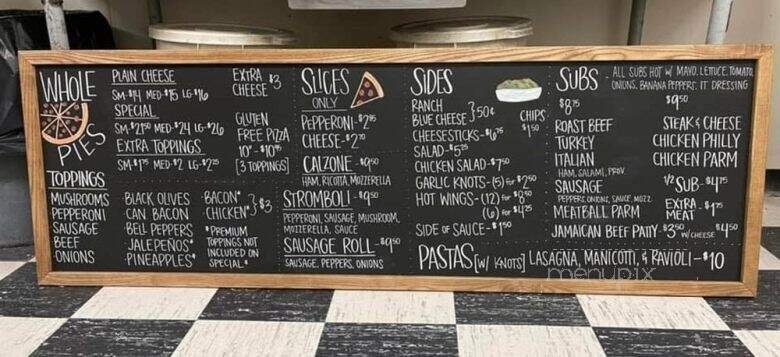 WHOLE
PIES
PLAIN CHEESE
SM-$14 MED-$15 LG-$16
SPECIAL
SM-$21⁵⁰ MED-$24 LG-$26
EXTRA TOPPINGS
SM-$1⁷⁵ MED-$2 LG-$2²⁵
EXTRA
CHEESE $3
GLUTEN
FREE PIZZA
10"-$10⁹⁵
[3 TOPPINGS]
TOPPINGS
MUSHROOMS
PEPPERONI
SAUSAGE
BEEF
ONIONS
BLACK OLIVES
CAN BACON
BELL PEPPERS
JALEPEÑOS*
PINEAPPLES*
BACON*
CHICKEN* } $3
*PREMIUM
TOPPINGS NOT
INCLUDED ON
SPECIAL*
SLICES
ONLY
PEPPERONI-$2⁹⁵
CHEESE-$2⁷⁰
CALZONE-$9⁵⁰
HAM, RICOTTA, MOZZERELLA
STROMBOLI-$9⁵⁰
PEPPERONI, SAUSAGE, MUSHROOM,
MOZZERELLA, SAUCE
SAUSAGE ROLL-$9⁵⁰
SAUSAGE, PEPPERS, ONIONS
SIDES
RANCH
BLUE CHEESE } 50¢
CHIPS
$1⁵⁰
CHEESESTICKS-$6⁷⁵
SALAD-$5²⁵
CHICKEN SALAD-$7⁵⁰
GARLIC KNOTS-(5) for $2⁵⁰
HOT WINGS-(12) for $8⁵⁰
(6) for $4²⁵
SIDE OF SAUCE-$1⁵⁰
SUBS
ALL SUBS HOT W/ MAYO, LETTUCE, TOMATO,
ONIONS, BANANA PEPPERS, IT DRESSING
$8⁷⁵
ROAST BEEF
TURKEY
ITALIAN
HAM, SALAMI, PROV
SAUSAGE
PEPPERS, ONIONS, SAUCE, MOZZ
MEATBALL PARM
$9⁵⁰
STEAK & CHEESE
CHICKEN PHILLY
CHICKEN PARM
½ SUB-$4⁷⁵
EXTRA
MEAT-$1⁷⁵
JAMAICAN BEEF PATTY-$3⁵⁰ W/CHEESE $4⁵⁰
PASTAS [W/ KNOTS] LASAGNA, MANICOTTI, & RAVIOLI-$10
menupix